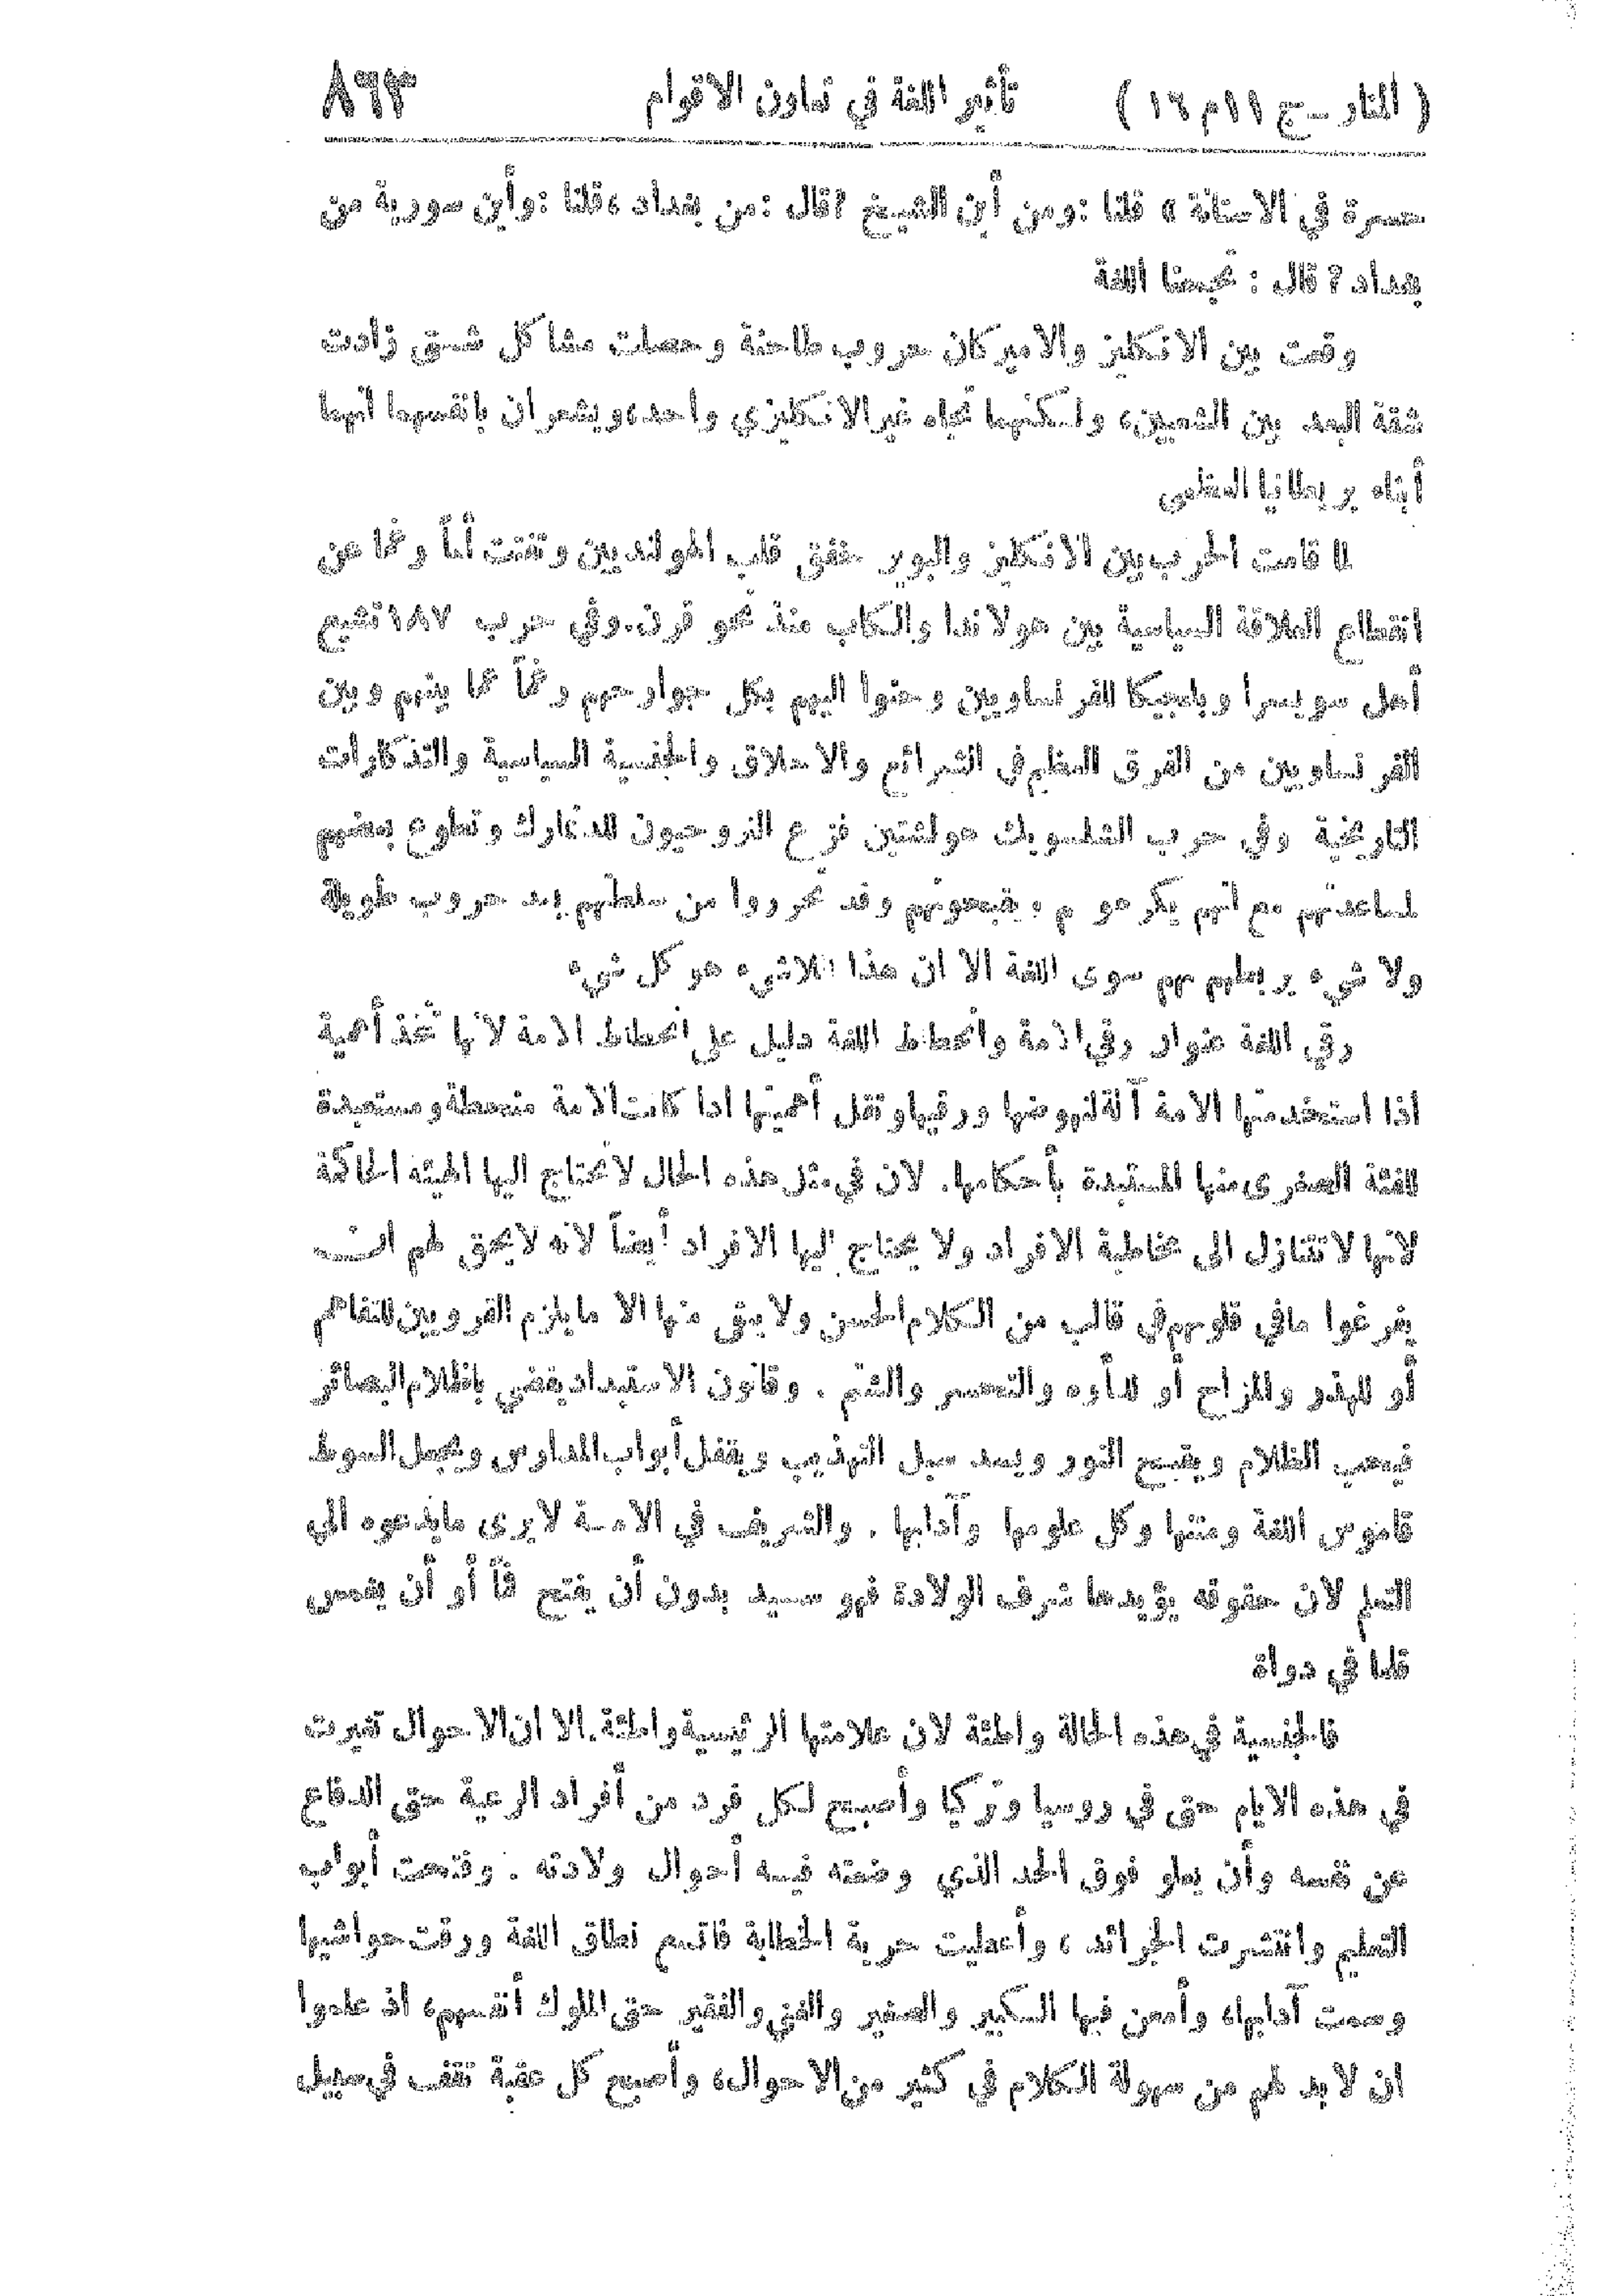 ( المنار – ج ١١ م ١٦ ) تأثير اللغة في تعاون الاقوام ٨٦٣
حسرة في الاستانة » قلنا : ومن أين الشيخ ? قال : من بغداد ، قلنا : وأين سورية من
بغداد ? قال : تجمعنا اللغة
وقعت بين الانكليز والاميركان حروب طاحنة وحصلت مشاكل شتى زادت
شقة البعد بين الشعبين، ولكنهما تجاه غير الانكليزي واحد، ويشعران بانفسهما انهما
أبناء بريطانيا العظمى
لما قامت الحرب بين الانكليز والبوير خفق قلب الهولنديين وتفتت ألماً رغما عن
انقطاع العلاقة السياسية بين هولاندا والكاب منذ نحو قرن. وفي حرب ١٨٧ تشيع
أهل سويسرا وبلجيكا للفرنساويين وحنوا اليهم بكل جوارحهم رغماً عما بينهم وبين
الفرنساويين من الفرق العظيم في الشرائع والاخلاق والجنسية السياسية والتذكارات
التاريخية وفي حرب الشلسويك هولشتين نزع النروجيون للدنمارك وتطوع بعضهم
لمساعدتهم مع انهم يكرهونهم ويقبحونهم وقد تحرروا من سلطتهم بعد حروب طويلة
ولا شيء يربطهم بهم سوى اللغة الا ان هذا اللاشيء هو كل شيء
رقي اللغة عنوان رقي الامة وانحطاط اللغة دليل على انحطاط الامة لانها تتخذ أهمية
اذا استخدمتها الامة آلة لنهوضها ورقيها وتقل أهميتها اذا كانت الامة منحطة ومستعبدة
للفئة الصغرى منها المستبدة بأحكامها. لان في مثل هذه الحال لا تحتاج اليها الهيئة الحاكمة
لانها لا تتنازل الى مخاطبة الافراد ولا يحتاج اليها الافراد أيضاً لانه لا يحق لهم ان
يفرغوا ما في قلوبهم في قالب من الكلام الحسن ولا يبقى منها الا ما يلزم القرويين للتفاهم
أو للهذر والمزاح أو للتأوه والتحسر والشتم . وقانون الاستبداد يقضي باظلام البصائر
فيحب الظلام ويقبح النور ويسد سبل التهذيب ويقفل أبواب المدارس ويجعل السوط
قاموس اللغة ومتنها وكل علومها وآدابها . والشريف في الامة لا يرى ما يدعوه الى
التعلم لان حقوقه يؤيدها شرف الولادة فهو سيد بدون أن يفتح فماً أو أن يغمس
قلما في دواة
فالجنسية في هذه الحالة واطئة لان علامتها الرئيسية واطئة. الا ان الاحوال تغيرت
في هذه الايام حتى في روسيا وتركيا وأصبح لكل فرد من أفراد الرعية حق الدفاع
عن نفسه وأن يعلو فوق الحد الذي وضعته فيه أحوال ولادته . وفتحت أبواب
التعليم وانتشرت الجرائد ، وأعطيت حرية الخطابة فاتسع نطاق اللغة ورقت حواشيها
وسمت آدابها، وأمعن فيها الكبير والصغير والغني والفقير حتى الملوك أنفسهم، اذ علموا
ان لا بد لهم من سهولة الكلام في كثير من الاحوال، وأصبح كل عقبة تقف في سبيل